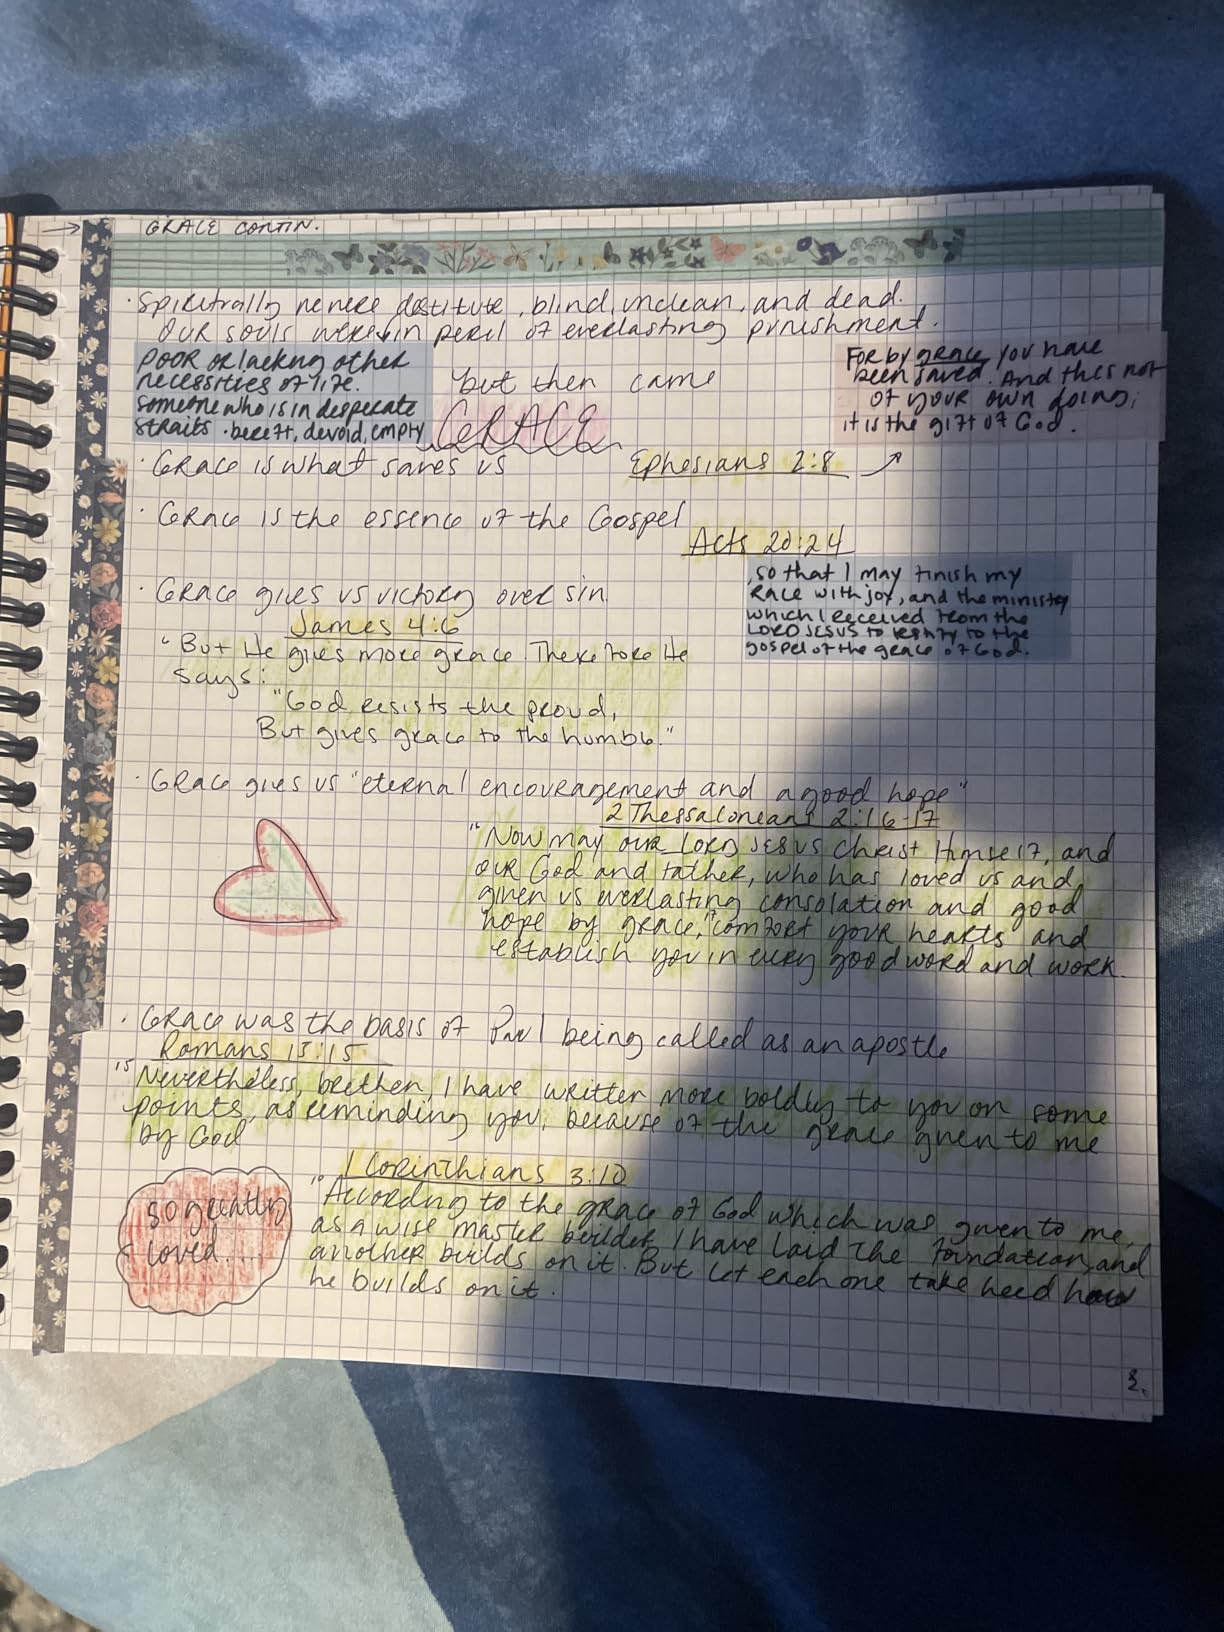 → GRACE CONTIN.
· Spiritually we were destitute, blind, unclean, and dead.
Our souls were in peril of everlasting punishment.
POOR OR lacking other
necessities of life.
someone who is in desperate
straits · bereft, devoid, empty
but then came
GRACE
For by grace you have
been saved. And this not
of your own doing;
it is the gift of God.
· Grace is what saves us
Ephesians 2:8
· Grace is the essence of the Gospel
Acts 20:24
, so that I may finish my
Race with joy, and the ministry
which I received from the
LORD JESUS to testify to the
gospel of the grace of God.
· Grace gives us victory over sin
James 4:6
"But He gives more grace. Therefore He
says:
"God resists the proud,
But gives grace to the humble."
· Grace gives us "eternal encouragement and a good hope"
2 Thessalonians 2:16-17
"Now may our Lord Jesus Christ Himself, and
our God and Father, who has loved us and
given us everlasting consolation and good
hope by grace, 17 comfort your hearts and
establish you in every good word and work.
· Grace was the basis of Paul being called as an apostle
Romans 15:15
15 Nevertheless, brethen, I have written more boldly to you on some
points, as reminding you, because of the grace given to me
by God
1 Corinthians 3:10
10 "According to the grace of God which was given to me,
as a wise master builder I have laid the foundation, and
another builds on it. But let each one take heed how
he builds on it.
so greatly
loved...